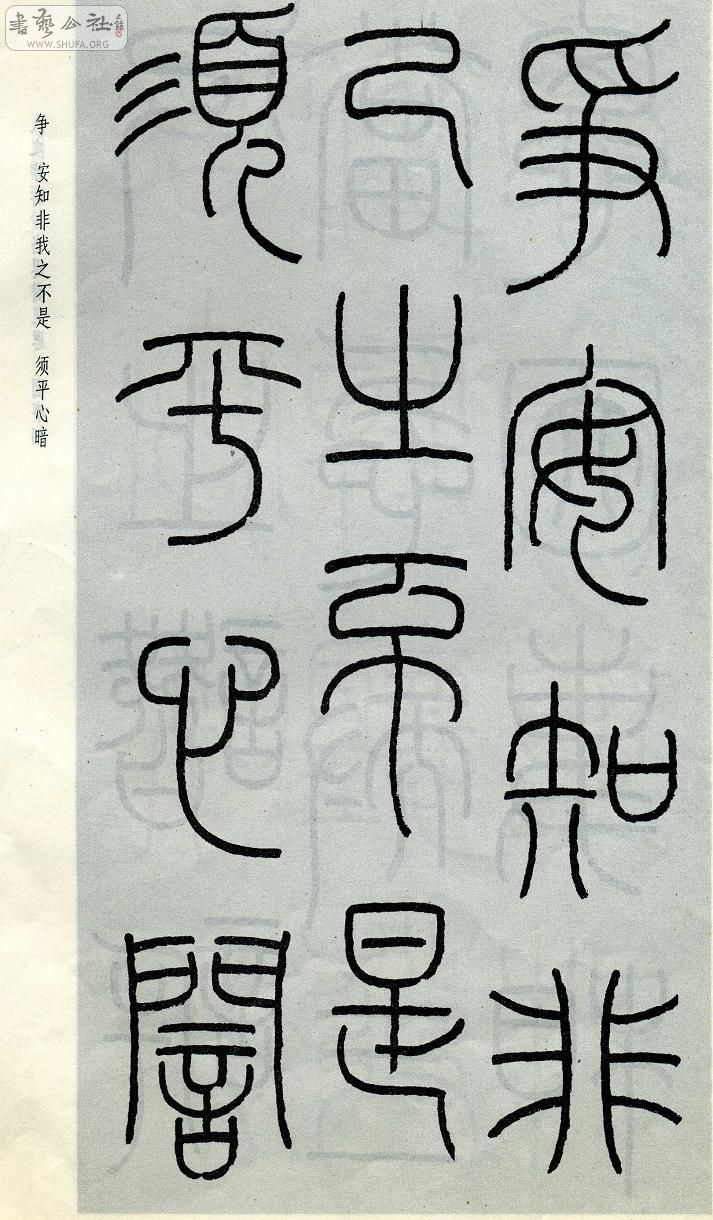 書藝公社
WWW.SHUFA.ORG
爭安知非
己之不是
須平心闇
争 安知非我之不是 须平心暗